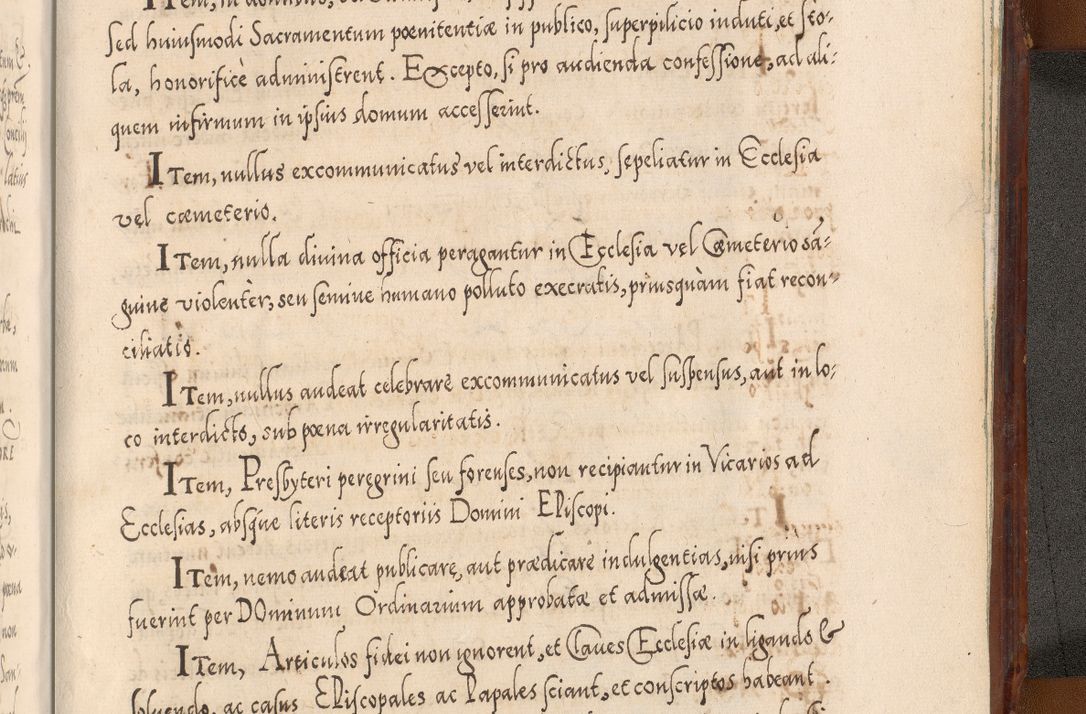 sed huiusmodi Sacramentum pœnitentiæ in publico, superpilicio induti, et sto-
la, honorificè administrent. Excepto, si pro audienda confessione, ad ali-
quem infirmum in ipsius domum accesserint.
Item, nullus excommunicatus vel interdictus, sepeliatur in Ecclesia
vel cœmeterio.
Item, nulla divina officia peragantur in Ecclesia vel Cœmeterio sã-
guine violentèr, seu semine humano polluto execratis, priusquàm fiat recon-
ciliatio.
Item, nullus audeat celebrare excommunicatus vel suspensus, aut in lo-
co interdicto, sub pœna irregularitatis.
Item, Presbyteri peregrini seu forenses, non recipiantur in Vicarios ad
Ecclesias, absque literis receptoriis Domini EPiscopi.
Item, nemo audeat publicare, aut prædicare indulgentias, nisi priùs
fuerint per DOminum Ordinarium approbatæ et admissæ.
Item, Articulos fidei non ignorent, et Claves Ecclesiæ in ligando &
solvendo, ac casus EPiscopales ac Papales sciant, et conscriptos habeant.